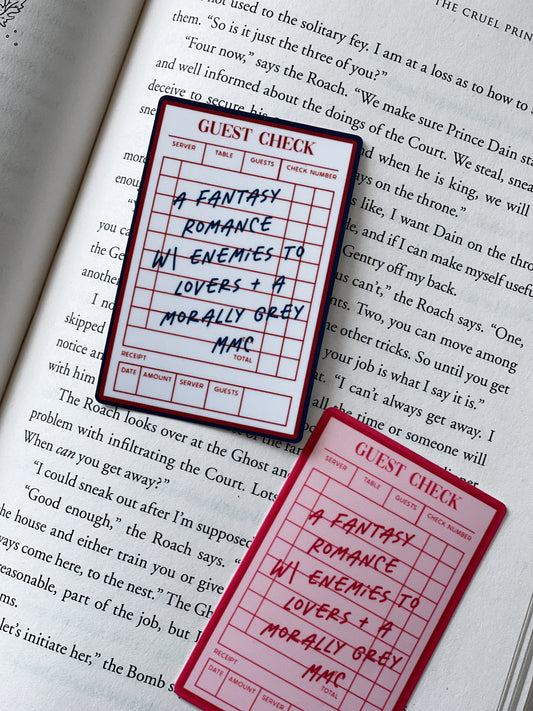 THE CRUEL PRIN
not used to the solitary fey. I am at a loss as to how to
them. “So is it just the three of you?”
“Four now,” says the Roach. “We make sure Prince Dain sta
and well informed about the doings of the Court. We steal, snea
deceive to secure his
and when he is king, we will
sne
ays on the throne.”
mor
enou
s like, I want Dain on the thro
de, and if I can make myself usefu
you ca
Gentry off my back.
the Ge
us can’t,” the Roach says. “One,
anothe
nts. Two, you can move among
I no
e other tricks. So until you get
skipped
your job is what I say it is.”
notice an
t. “I can’t always get away. I
with him
all the time or someone will
The Roach looks over at the Ghost an
problem with infiltrating the Court. Lots
When can you get away?”
“I could sneak out after I’m suppose
“Good enough,” the Roach says. “
he house and either train you or give
ways come here, to the nest.” The Gh
reasonable, part of the job, but I
ms.
let’s initiate her,” the Bomb s
GUEST CHECK
SERVER TABLE GUESTS CHECK NUMBER
A FANTASY
ROMANCE
W/ ENEMIES TO
LOVERS + A
MORALLY GREY
MMC
RECEIPT TOTAL
DATE AMOUNT SERVER GUESTS
GUEST CHECK
SERVER TABLE GUESTS CHECK NUMBER
A FANTASY
ROMANCE
W/ ENEMIES TO
LOVERS + A
MORALLY GREY
MMC
RECEIPT TOTAL
DATE AMOUNT SERVER